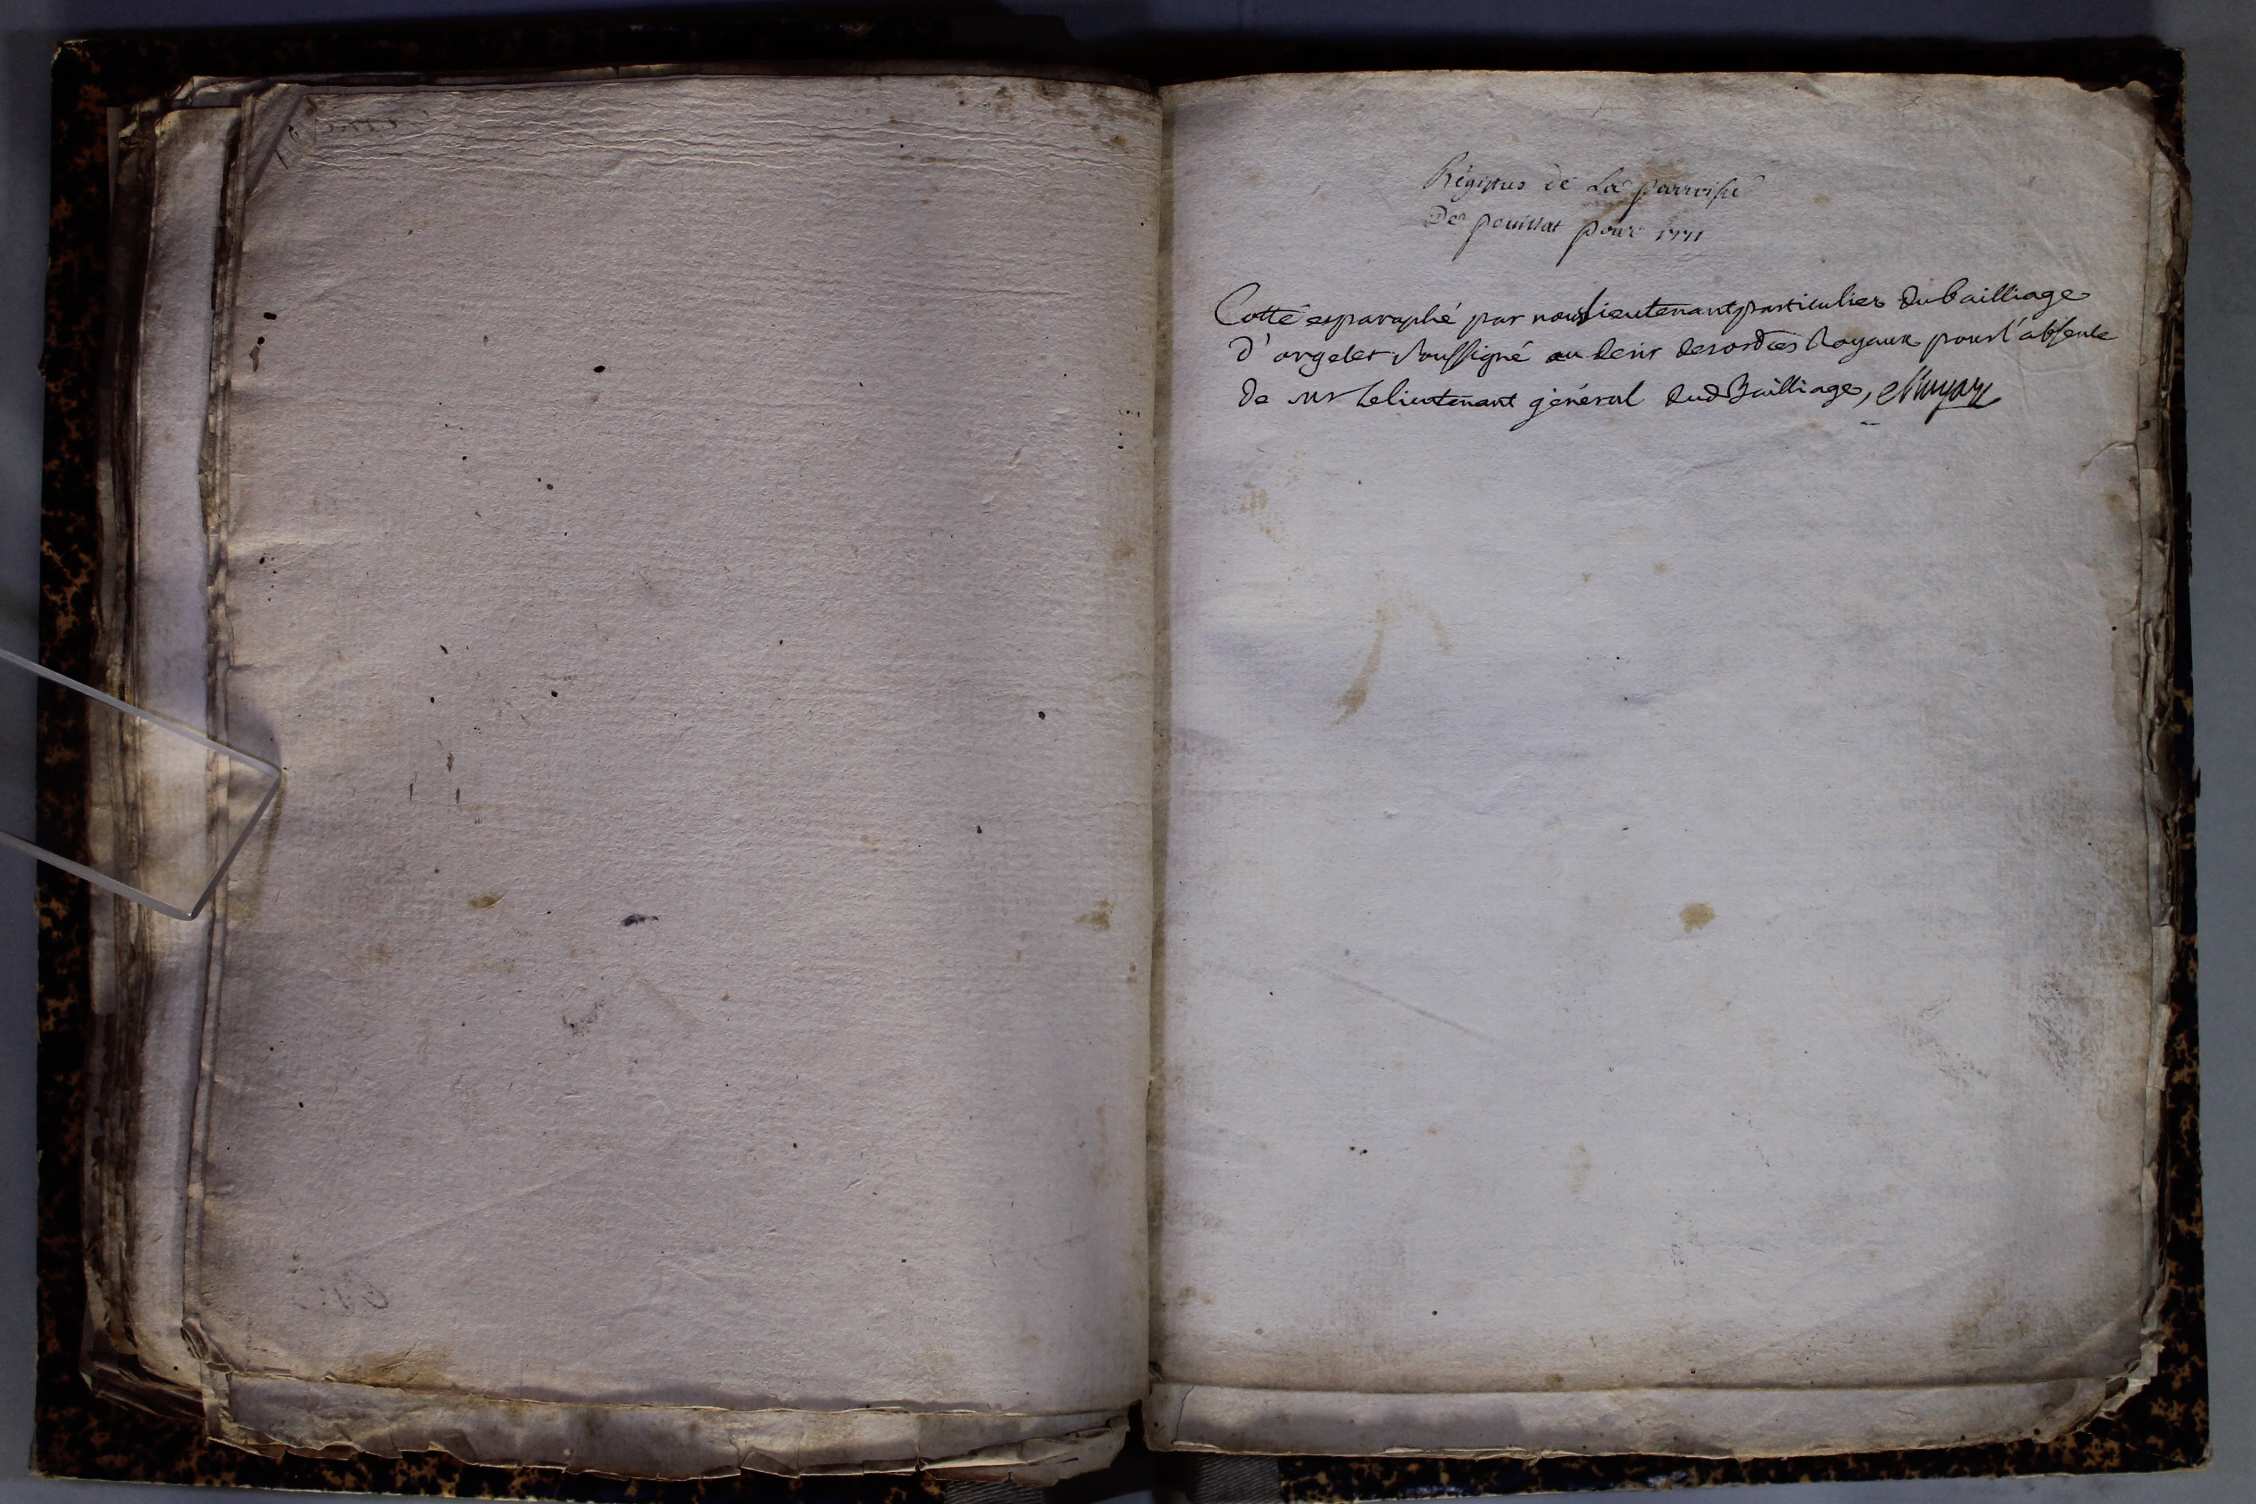 Régistres de La parroisse
De pouillat pour 1771
Cotté et paraphé par nous Lieutenant particulier du bailliage
d'orgelet soussigné au desir des ordres Royaux pour l'absence
de mr le lieutenant général dud Bailliage,